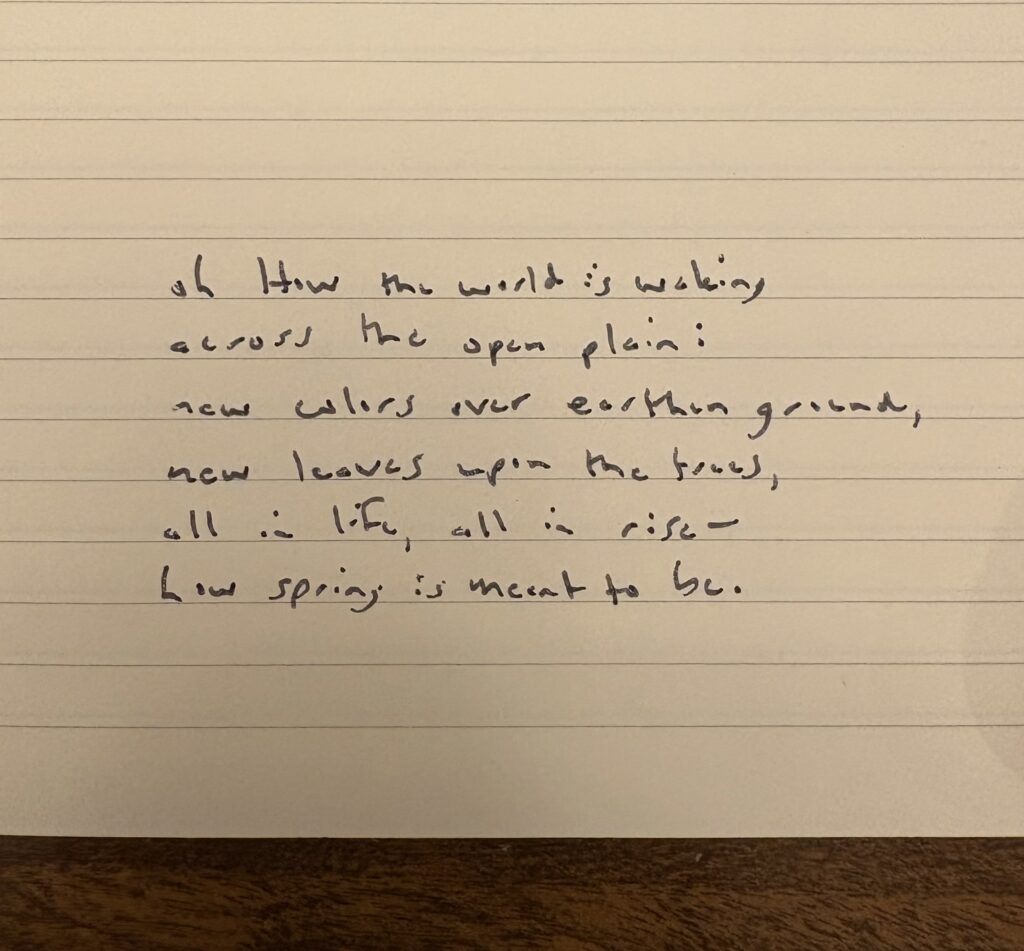 oh How the world is waking
across the open plain:
new colors over earthen ground,
new leaves upon the trees,
all in life, all in rise—
how spring is meant to be.